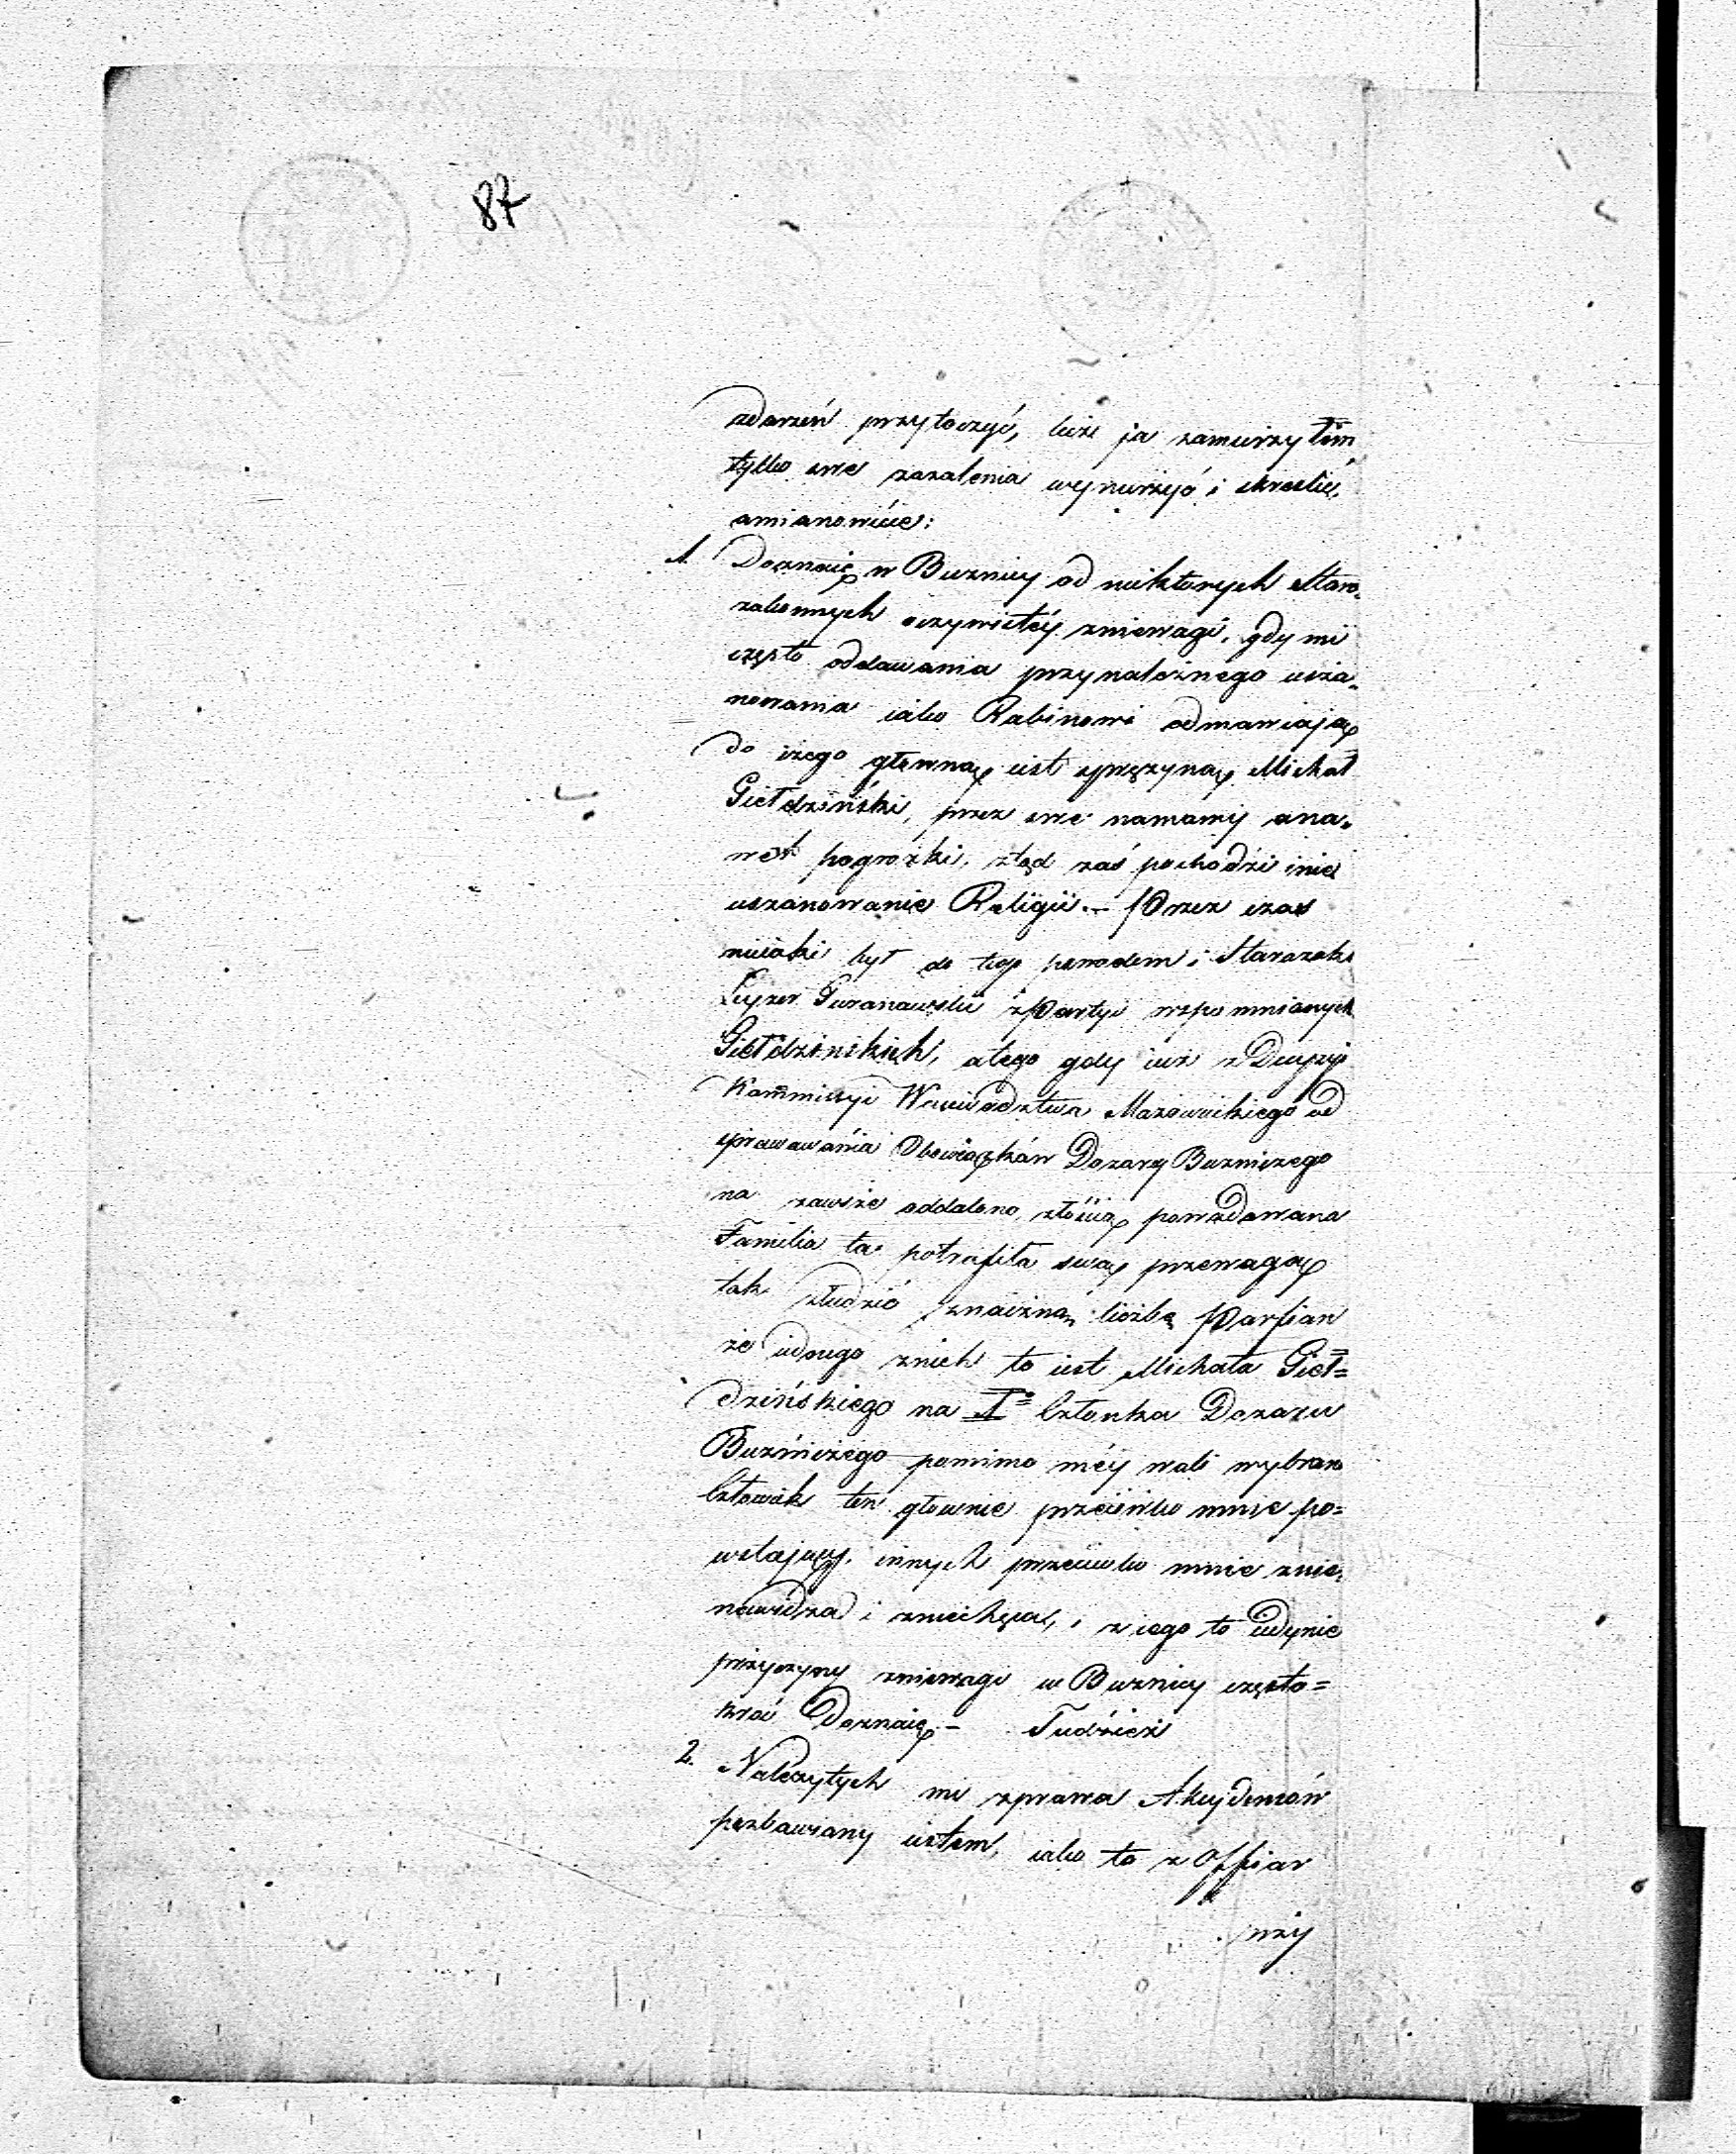 87
zdarzeń przytoczyć, lecz ja zamierzyłem
tylko swe zażalenia wynurzyć i skreślić,
amianowicie:
1. Doznaię w Buznicy od niektorych Staro-
zakonnych oczywistéy zniewagi, gdy mi
często oddawania przynależnego usza-
nowania iako Rabinowi odmawiają
do czego głowną iest sprężyną Michał
Giełdziński, przez swe namowy ana-
wet pogrożki, ztąd zaś pochodzi i nie
uszanowanie Religii.- Przez czas
nieiaki był do tego powodem i Starozak:
Leyzer z Partyi wspomnionych
Giełdzińskich, atego gdy iuż z Decyzyi
Kommissyi Woiewodztwa Mazowieckiego od
sprawowania Obowiązków Dozoru Buzniczego
na zawsze oddalono, złością powodowana
Familia ta potrafiła swą przewagą
tak złudzić znaczną liczbę Parfian
że iednego znich to iest Michała Gieł=
dzińskiego na I= Członka Dozoru
Buzniczego pomimo méy woli wybrano
Człowiek ten głownie przeciwko mnie po=
wstający, innych przeciwko mnie znie-
nawidza i zniechęca, i z iego to iedynie
przyczyny zniewagi w Buznicy często=
kroć Doznaię.- Tudzież
2. Należytych mi zprawa Akcydensów
pozbawiany iestem, iako to z Offiar
przy